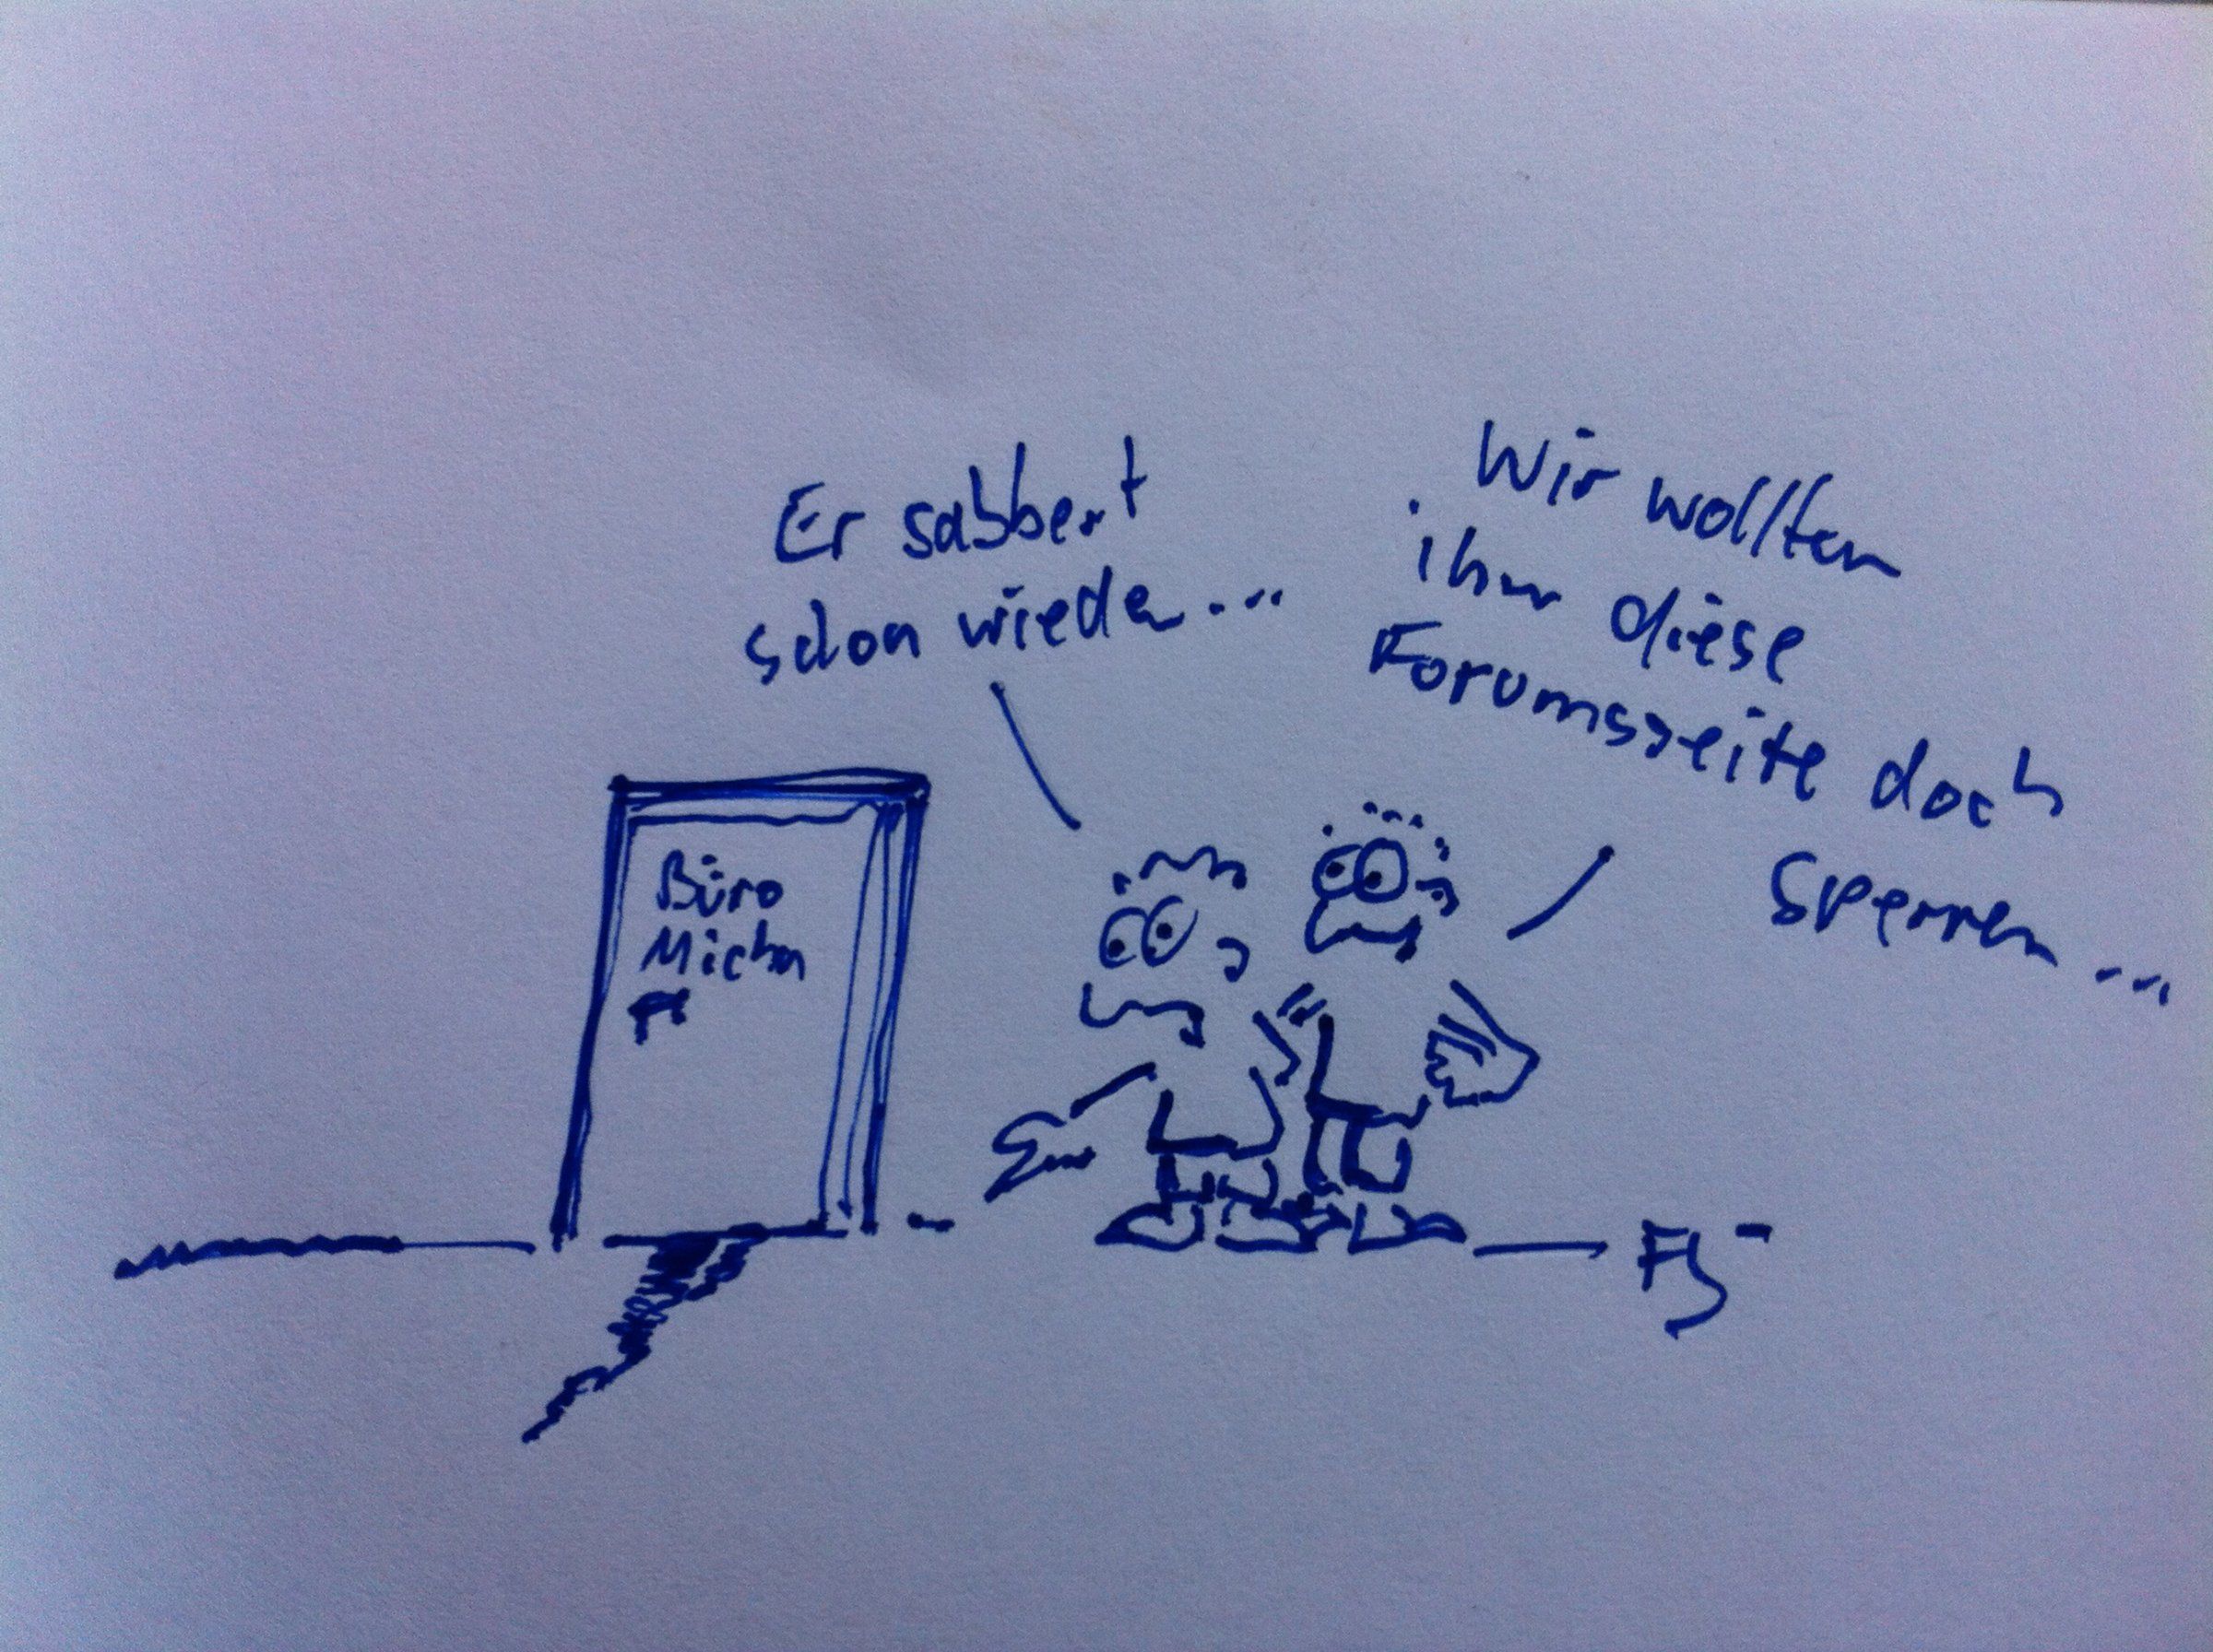 Er sabbert
schon wieder...
Wir wollten
ihm diese
Forumsseite doch
sperren...
Büro
Micha